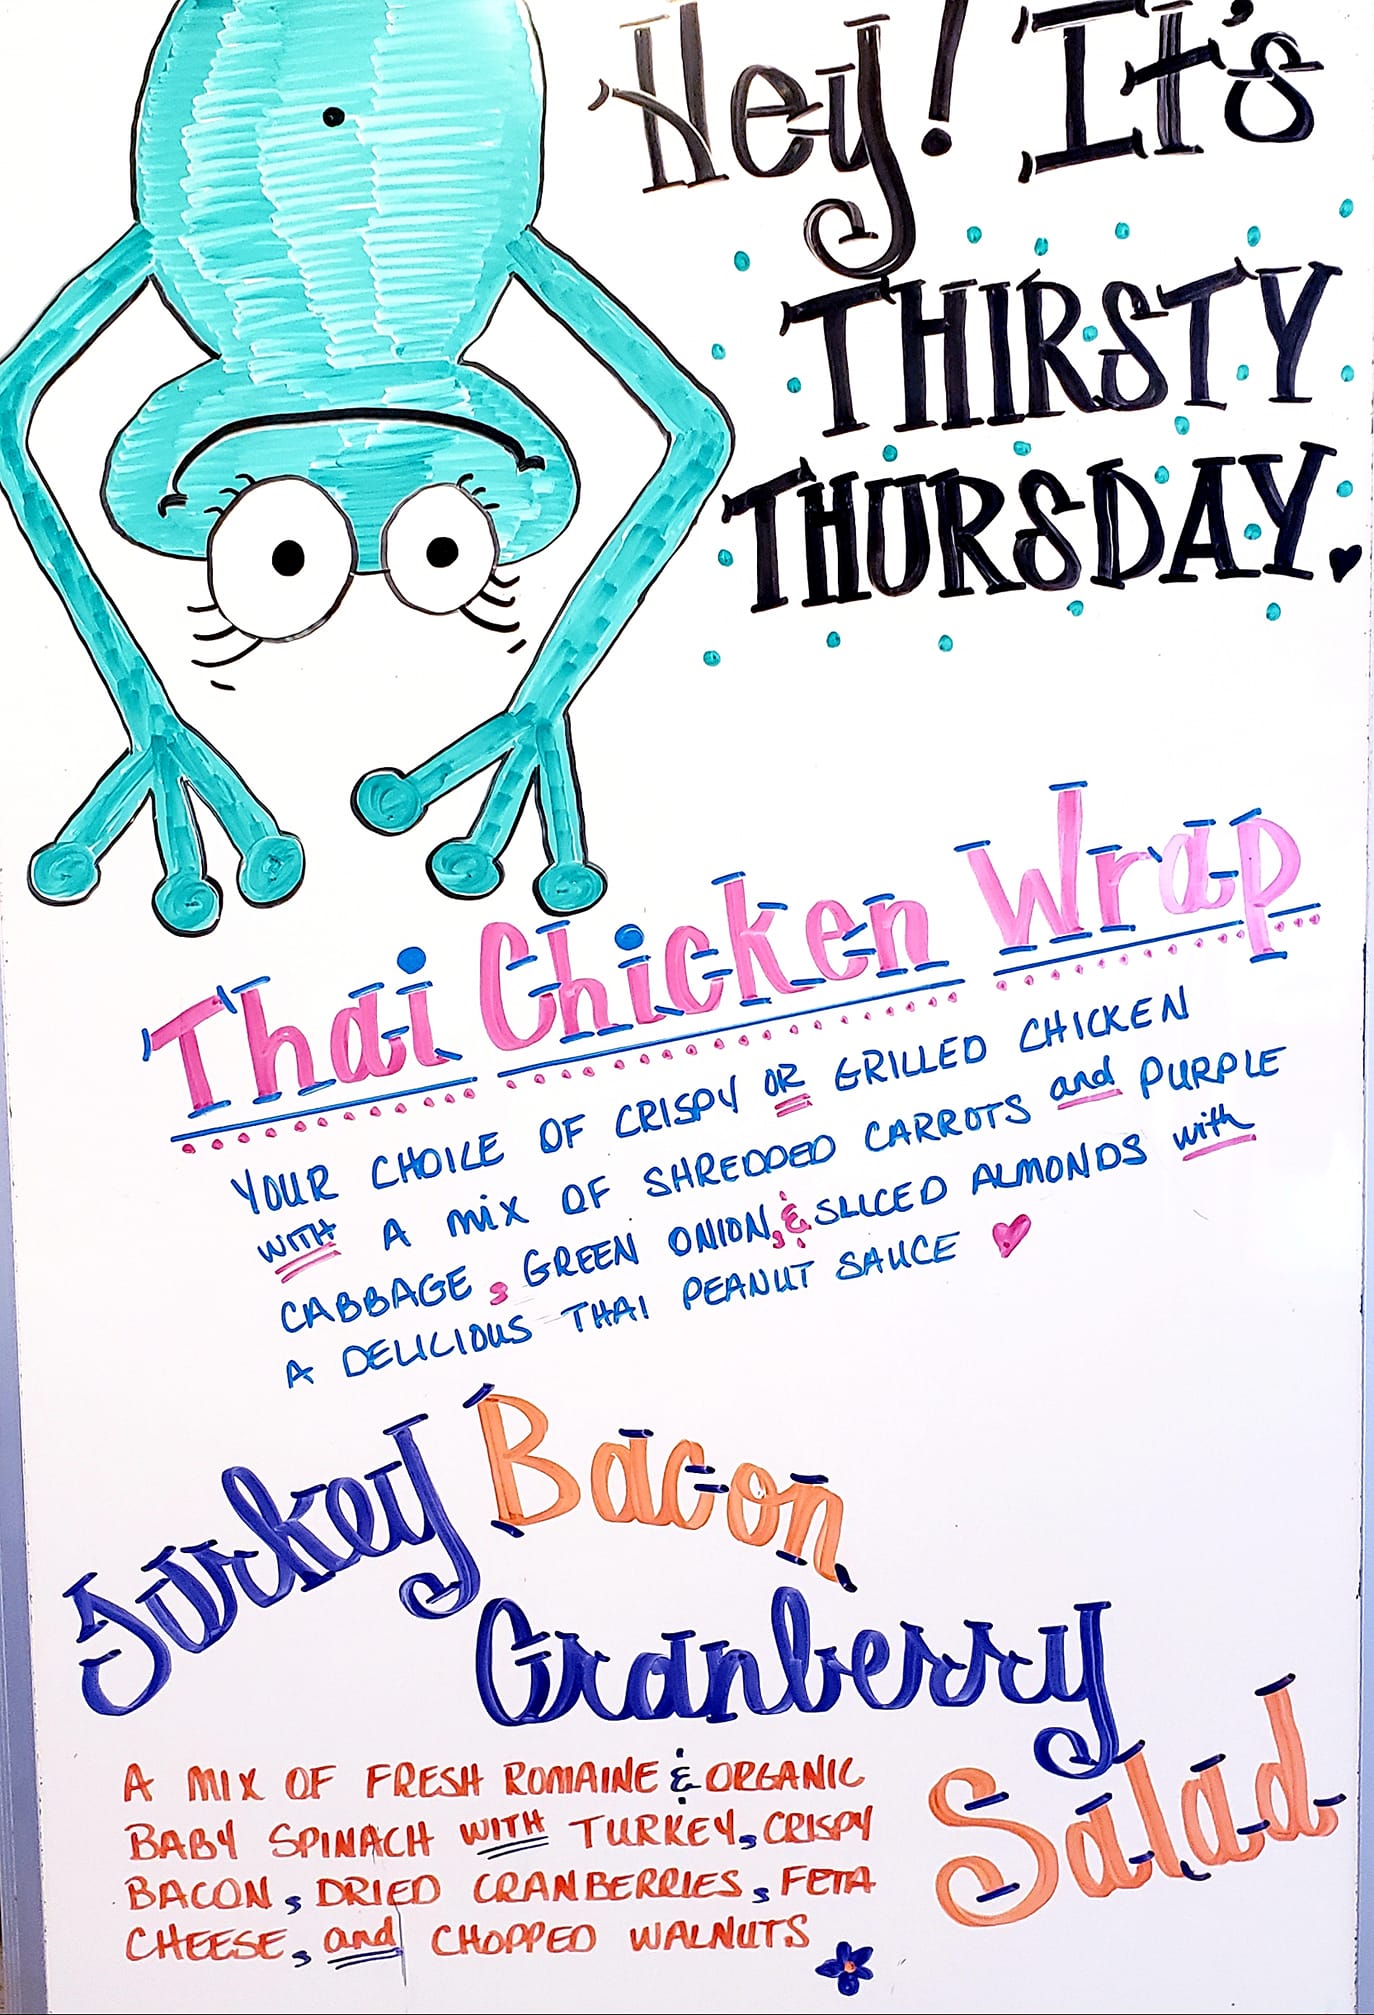 Hey! It's
THIRSTY
THURSDAY.
Thai Chicken Wrap
YOUR CHOICE OF CRISPY OR GRILLED CHICKEN
WITH A MIX OF SHREDDED CARROTS and PURPLE
CABBAGE, GREEN ONION, & SLICED ALMONDS with
A DELICIOUS THAI PEANUT SAUCE
Turkey Bacon
Cranberry
Salad
A MIX OF FRESH ROMAINE & ORGANIC
BABY SPINACH WITH TURKEY, CRISPY
BACON, DRIED CRANBERRIES, FETA
CHEESE, and CHOPPED WALNUTS